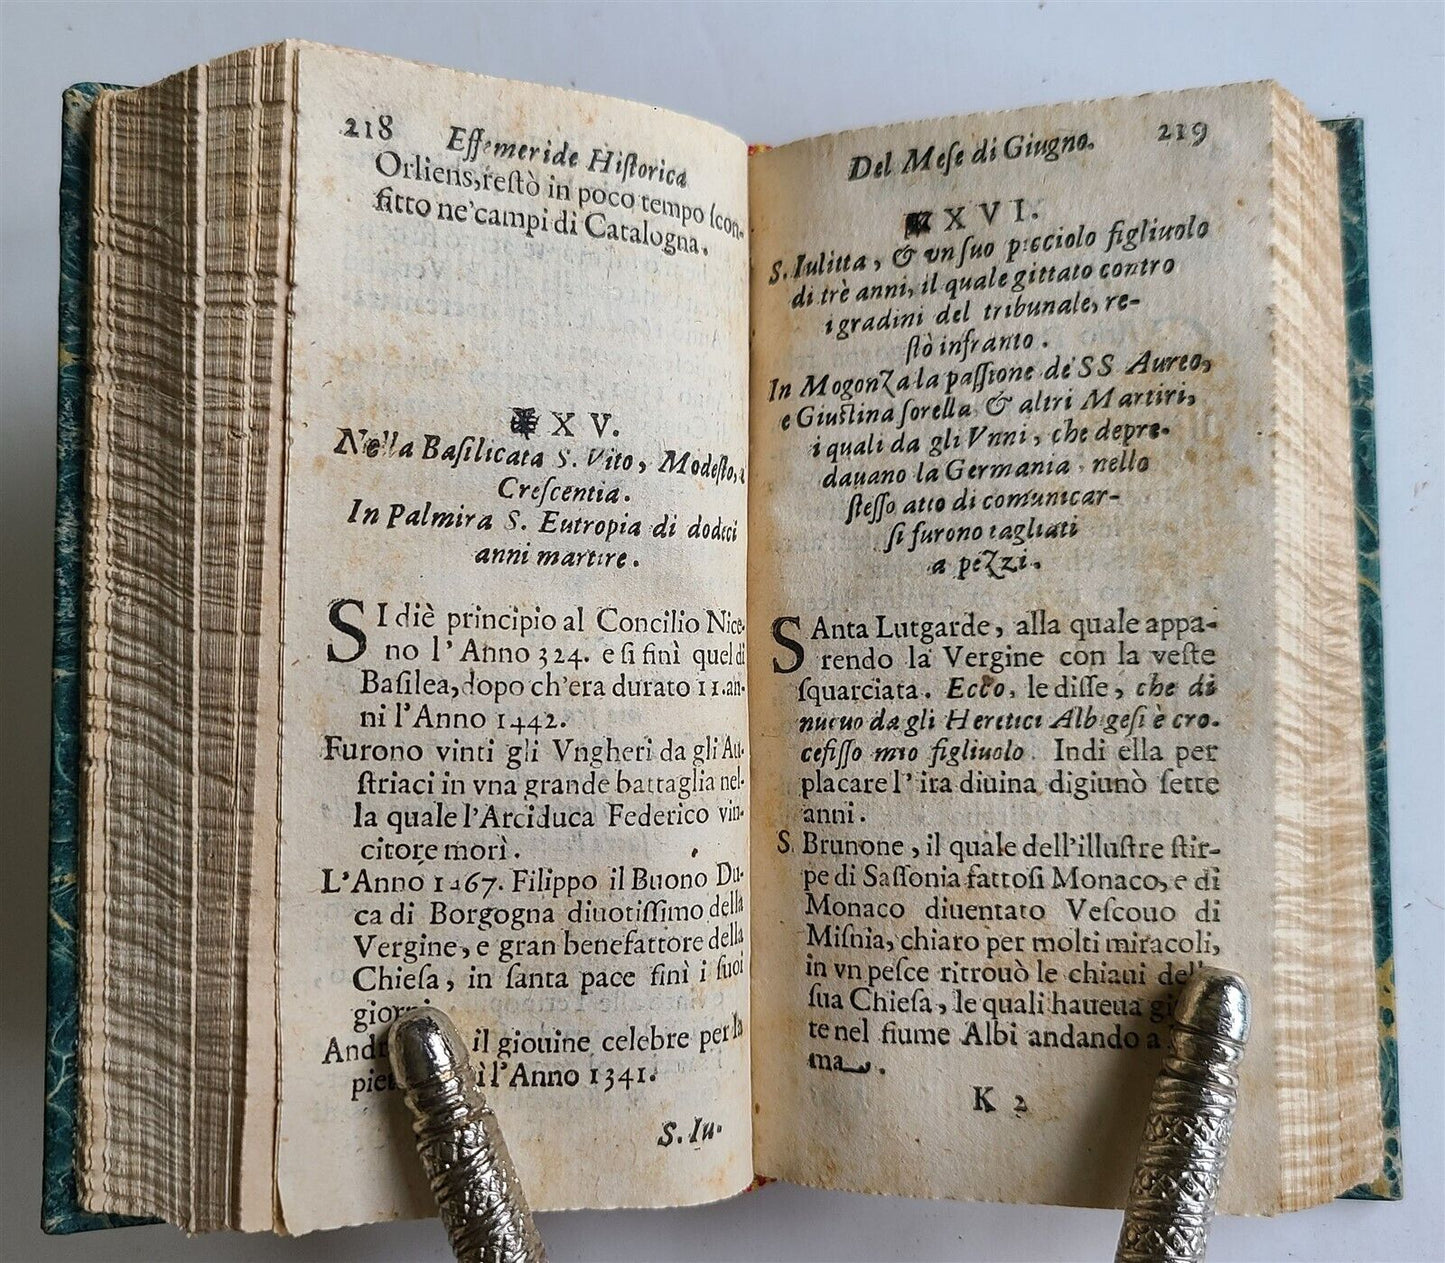 218
Effemeride Hiſtorica
Orliens, reſtò in poco tempo ſcon-
fitto ne' campi di Catalogna.
XV.
Nella Baſilicata S. Vito, Modeſto,
Creſcentia.
In Palmira S. Eutropia di dodeci
anni martire.
SI diè principio al Concilio Nice-
no l'Anno 324. e ſi finì quel di
Baſilea, dopo ch'era durato 11. an-
ni l'Anno 1442.
Furono vinti gli Vngheri da gli Au-
ſtriaci in vna grande battaglia nel-
la quale l'Arciduca Federico vin-
citore morì.
L'Anno 1467. Filippo il Buono Du-
ca di Borgogna diuotiſſimo della
Vergine, e gran benefattore della
Chieſa, in ſanta pace finì i ſuoi
giorni
il giouine celebre per la
l'Anno 1341.
S. Iu-
Del Meſe di Giugno.
219
XVI.
S. Iulitta, & vn ſuo picciolo figliuolo
di trè anni, il quale gittato contro
i gradini del tribunale, re-
ſtò infranto.
In Mogonza la paſſione de' SS Aureo,
e Giuſtina ſorella, & altri Martiri,
i quali da gli Vnni, che depre-
dauano la Germania, nello
ſteſſo atto di comunicar-
ſi furono tagliati
a pezzi.
SAnta Lutgarde, alla quale appa-
rendo la Vergine con la veſte
ſquarciata. Ecco, le diſſe, che di
nuouo da gli Heretici Albigeſi è cro-
cefiſſo mio figliuolo. Indi ella per
placare l'ira diuina digiunò ſette
anni.
S. Brunone, il quale dell'illuſtre ſtir-
pe di Saſſonia fattoſi Monaco, e di
Monaco diuentato Veſcouo di
Miſnia, chiaro per molti miracoli,
in vn peſce ritrouò le chiaui
ſua Chieſa, le quali haueua
te nel fiume Albi andando a
ma.
K 2